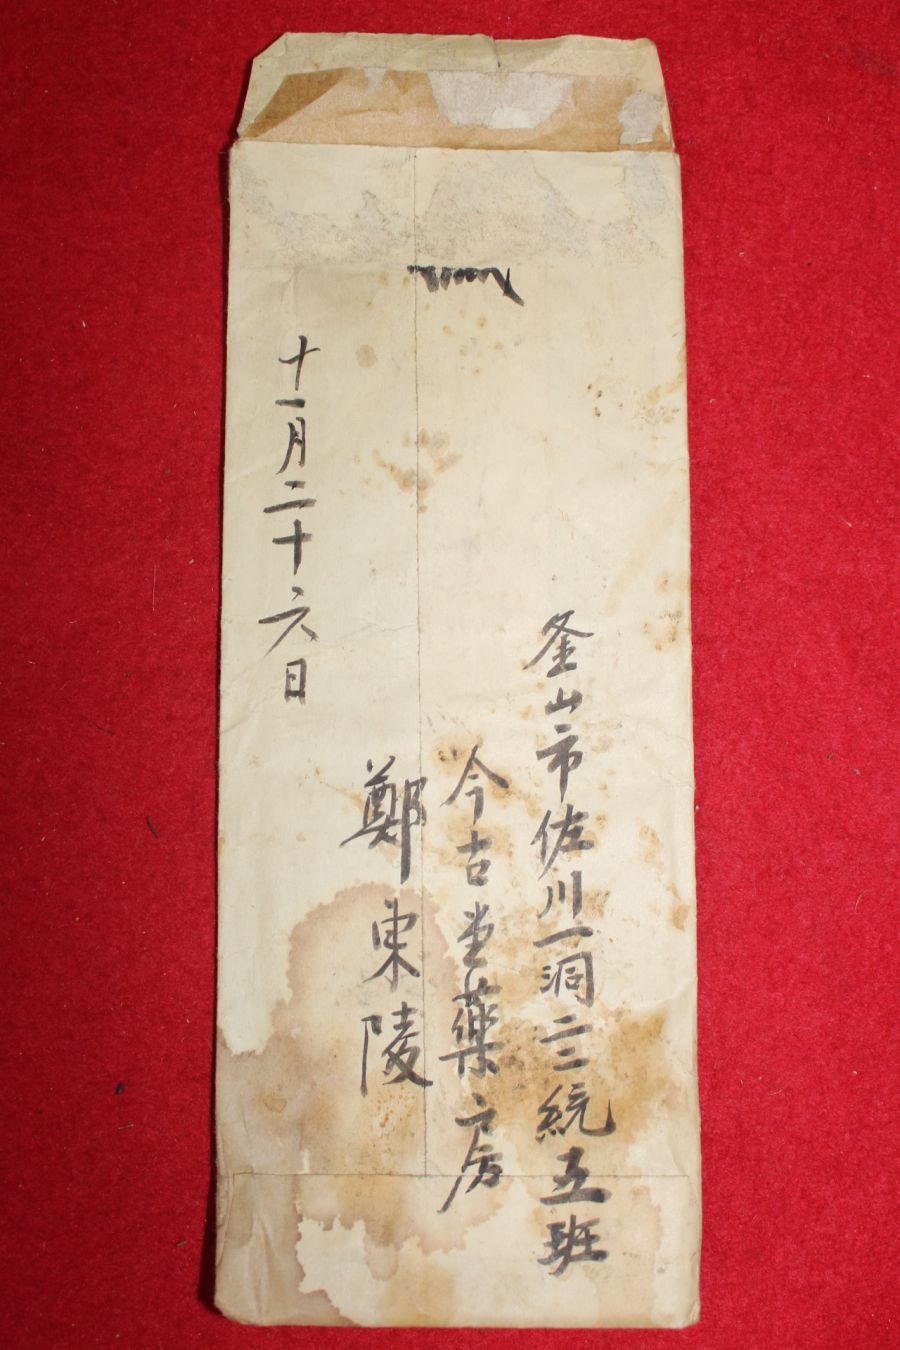 釜山市佐川一洞二三統五班
今古堂藥房
鄭東陵
十一月二十六日